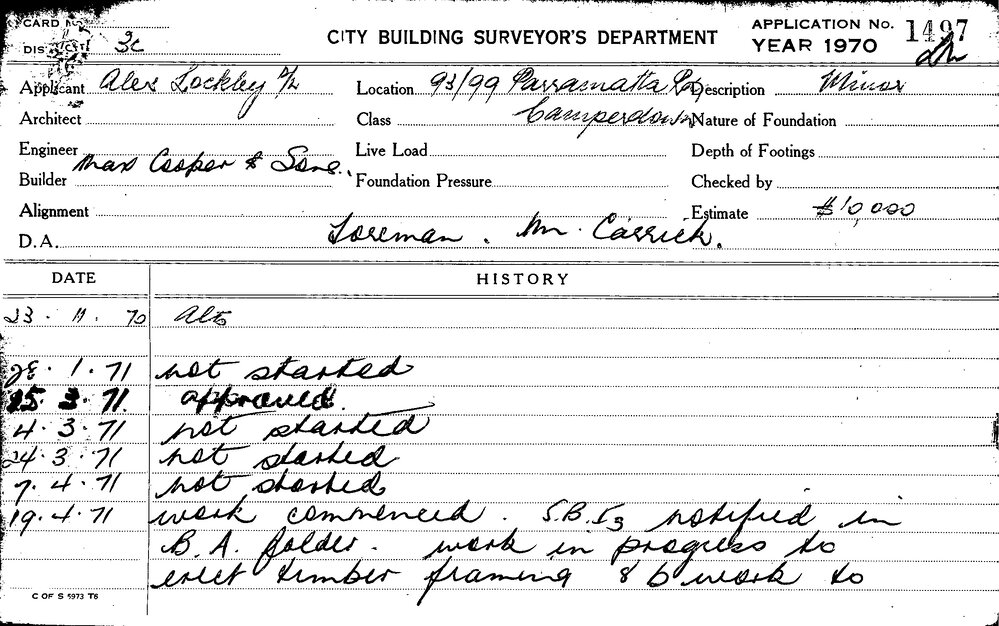 CARD No.
DISTRICT 3c
CITY BUILDING SURVEYOR'S DEPARTMENT
APPLICATION No. 1497
YEAR 1970
Applicant Alex Lockley P/L
Location 93/99 Parramatta Rd
Description Minor
Architect
Class Camperdown
Nature of Foundation
Engineer
Live Load
Depth of Footings
Builder Max Cooper & Sons.
Foundation Pressure
Checked by
Alignment
Estimate $10,000
D.A. Foreman . Mr. Carrick.
DATE HISTORY
23 . 11 . 70 Alts
28 . 1 . 71 not started
25 . 3 . 71. approved.
4 . 3 . 71 not started
24 . 3 . 71 not started
7 . 4 . 71 not started
19 . 4 . 71 work commenced . S.B.I3 notified in
B. A. folder . work in progress to
erect timber framing & b work to
C OF S 5973 T6